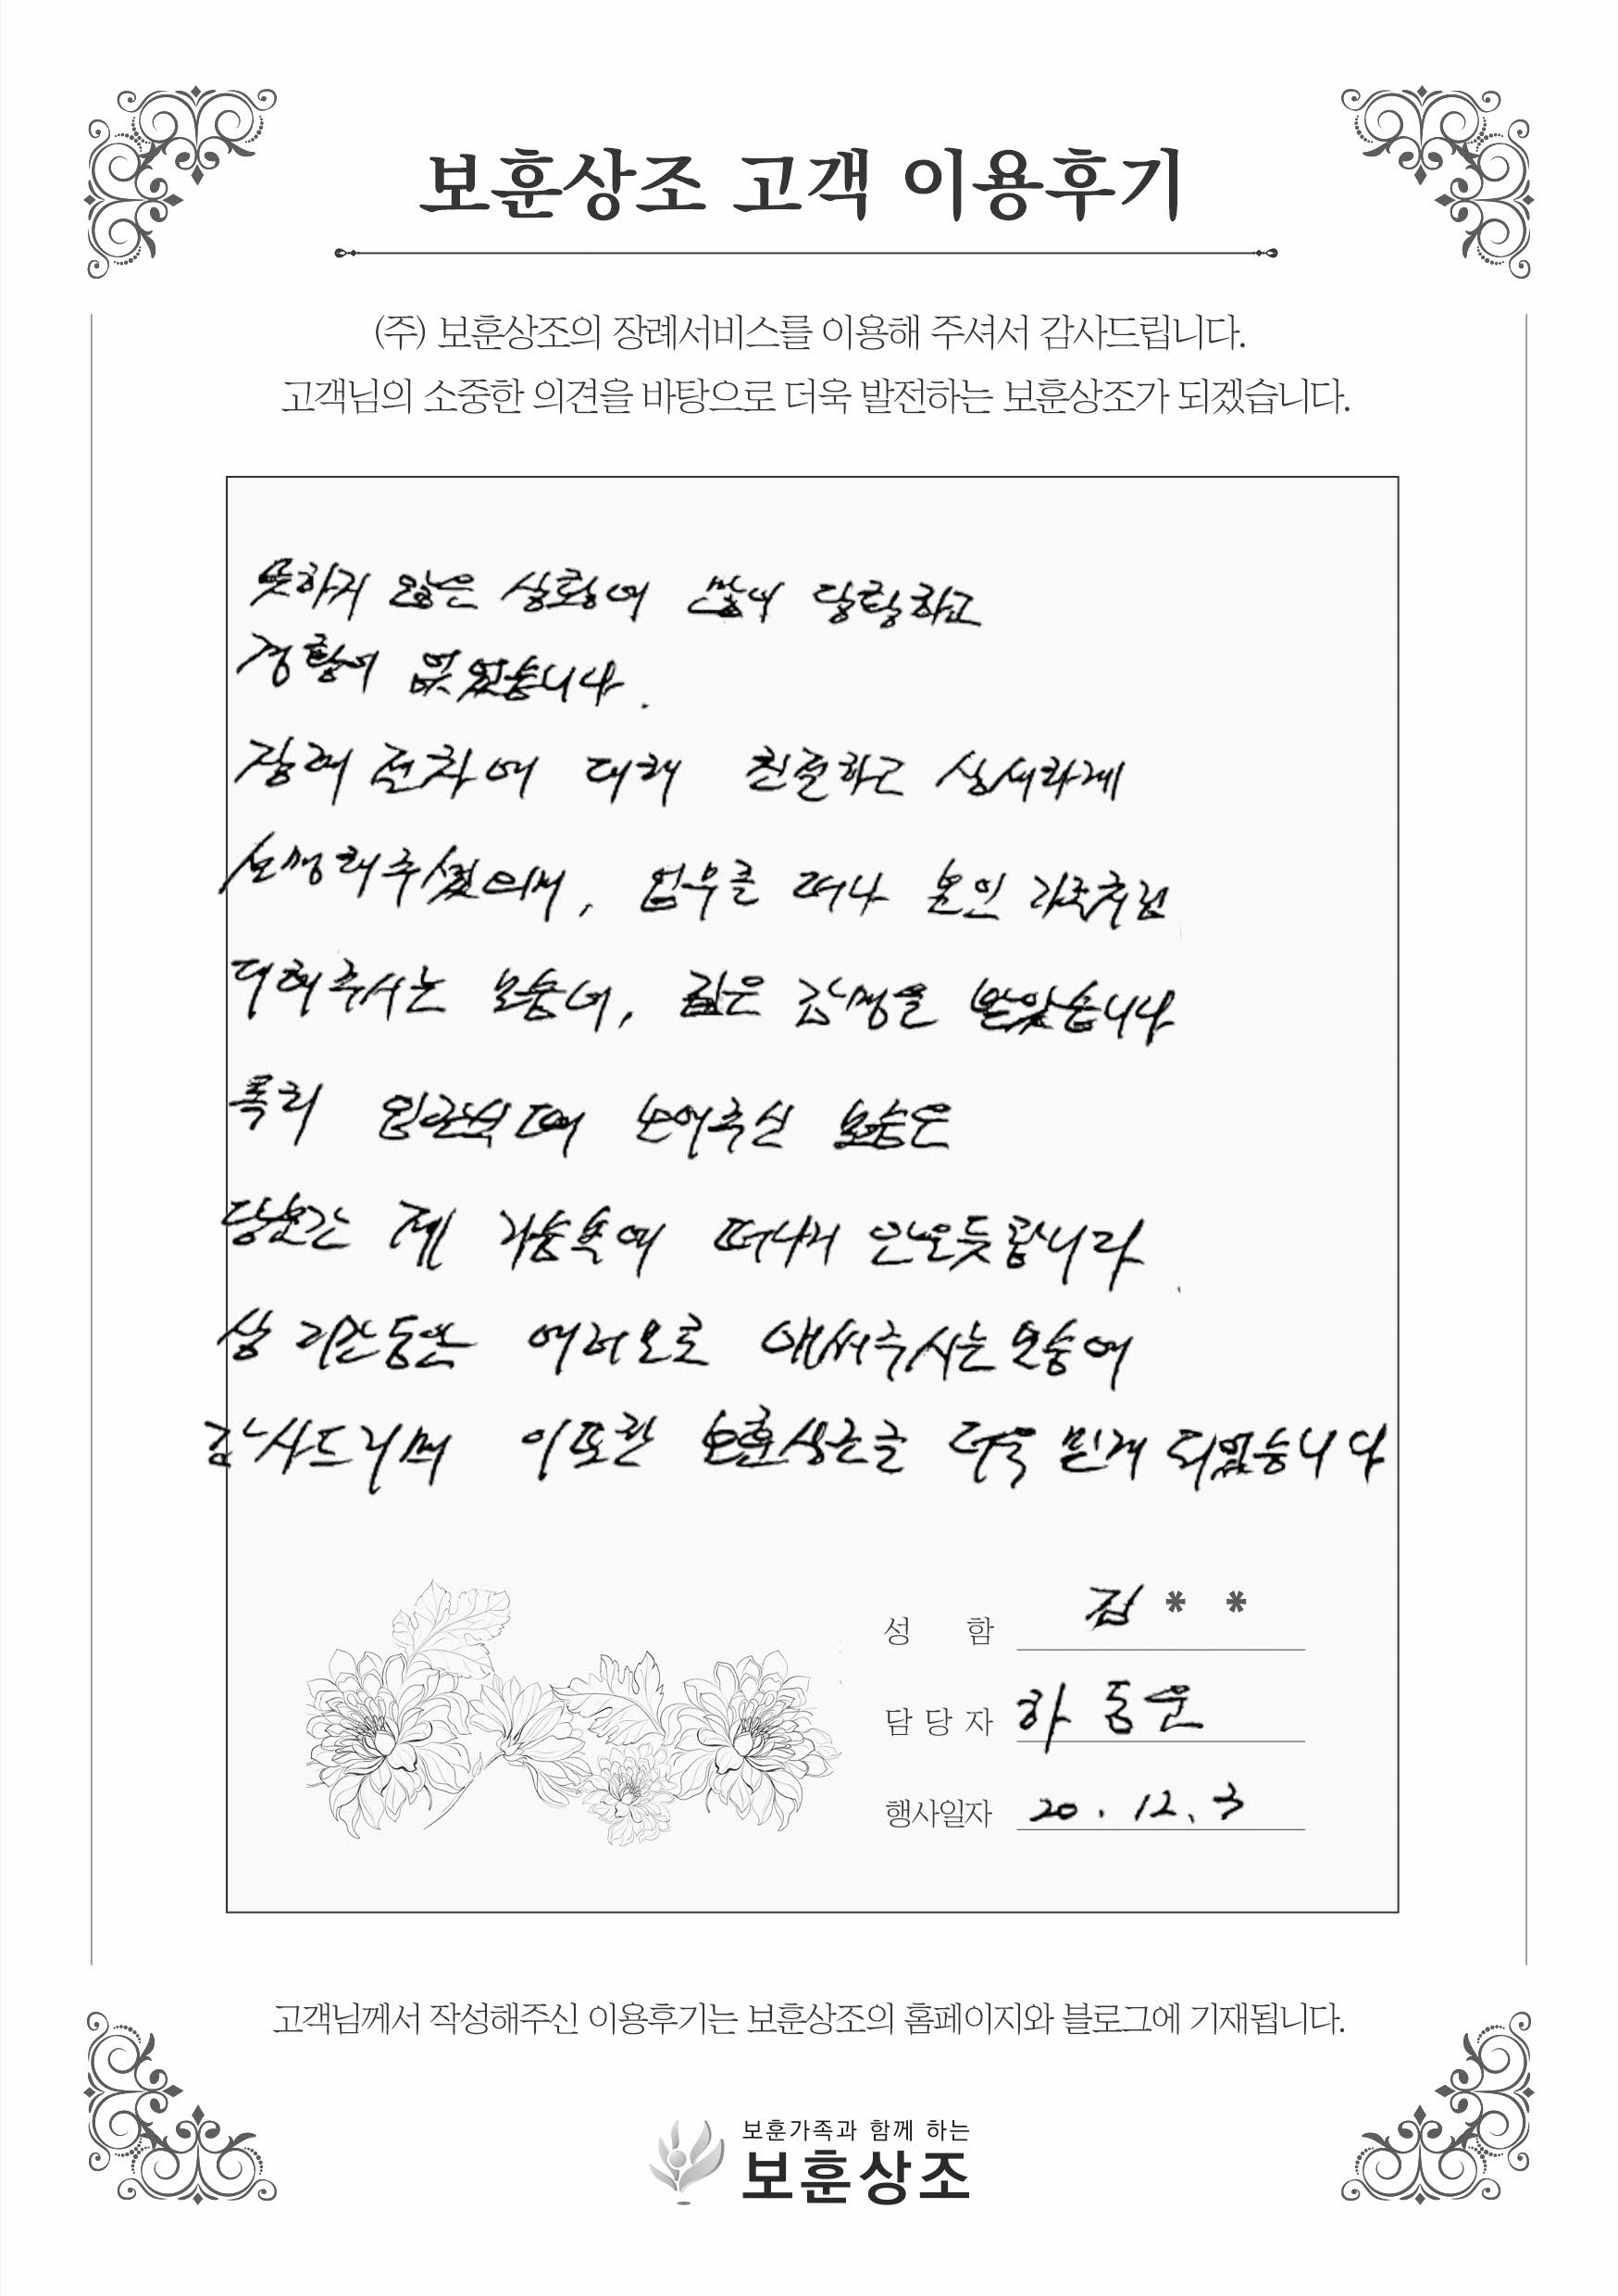 보훈상조 고객 이용후기
(주) 보훈상조의 장례서비스를 이용해 주셔서 감사드립니다.
고객님의 소중한 의견을 바탕으로 더욱 발전하는 보훈상조가 되겠습니다.
뜻하지 않은 상황에 많이 당황하고
경황이 없었습니다.
장례 절차에 대해 친절하고 상세하게
설명해주셨으며, 업무를 떠나 본인 가족처럼
대해주시는 모습에, 깊은 감명을 받았습니다
특히 입관식때 보여주신 모습은
당분간 제 가슴속에 떠나지 않을듯합니다.
상 기간동안 여러모로 애써주시는 모습에
감사드리며 이또한 보훈상조를 더욱 믿게 되었습니다
성 함 김 * *
담 당 자 하 동운
행사일자 20. 12. 3
고객님께서 작성해주신 이용후기는 보훈상조의 홈페이지와 블로그에 기재됩니다.
보훈가족과 함께 하는
보훈상조